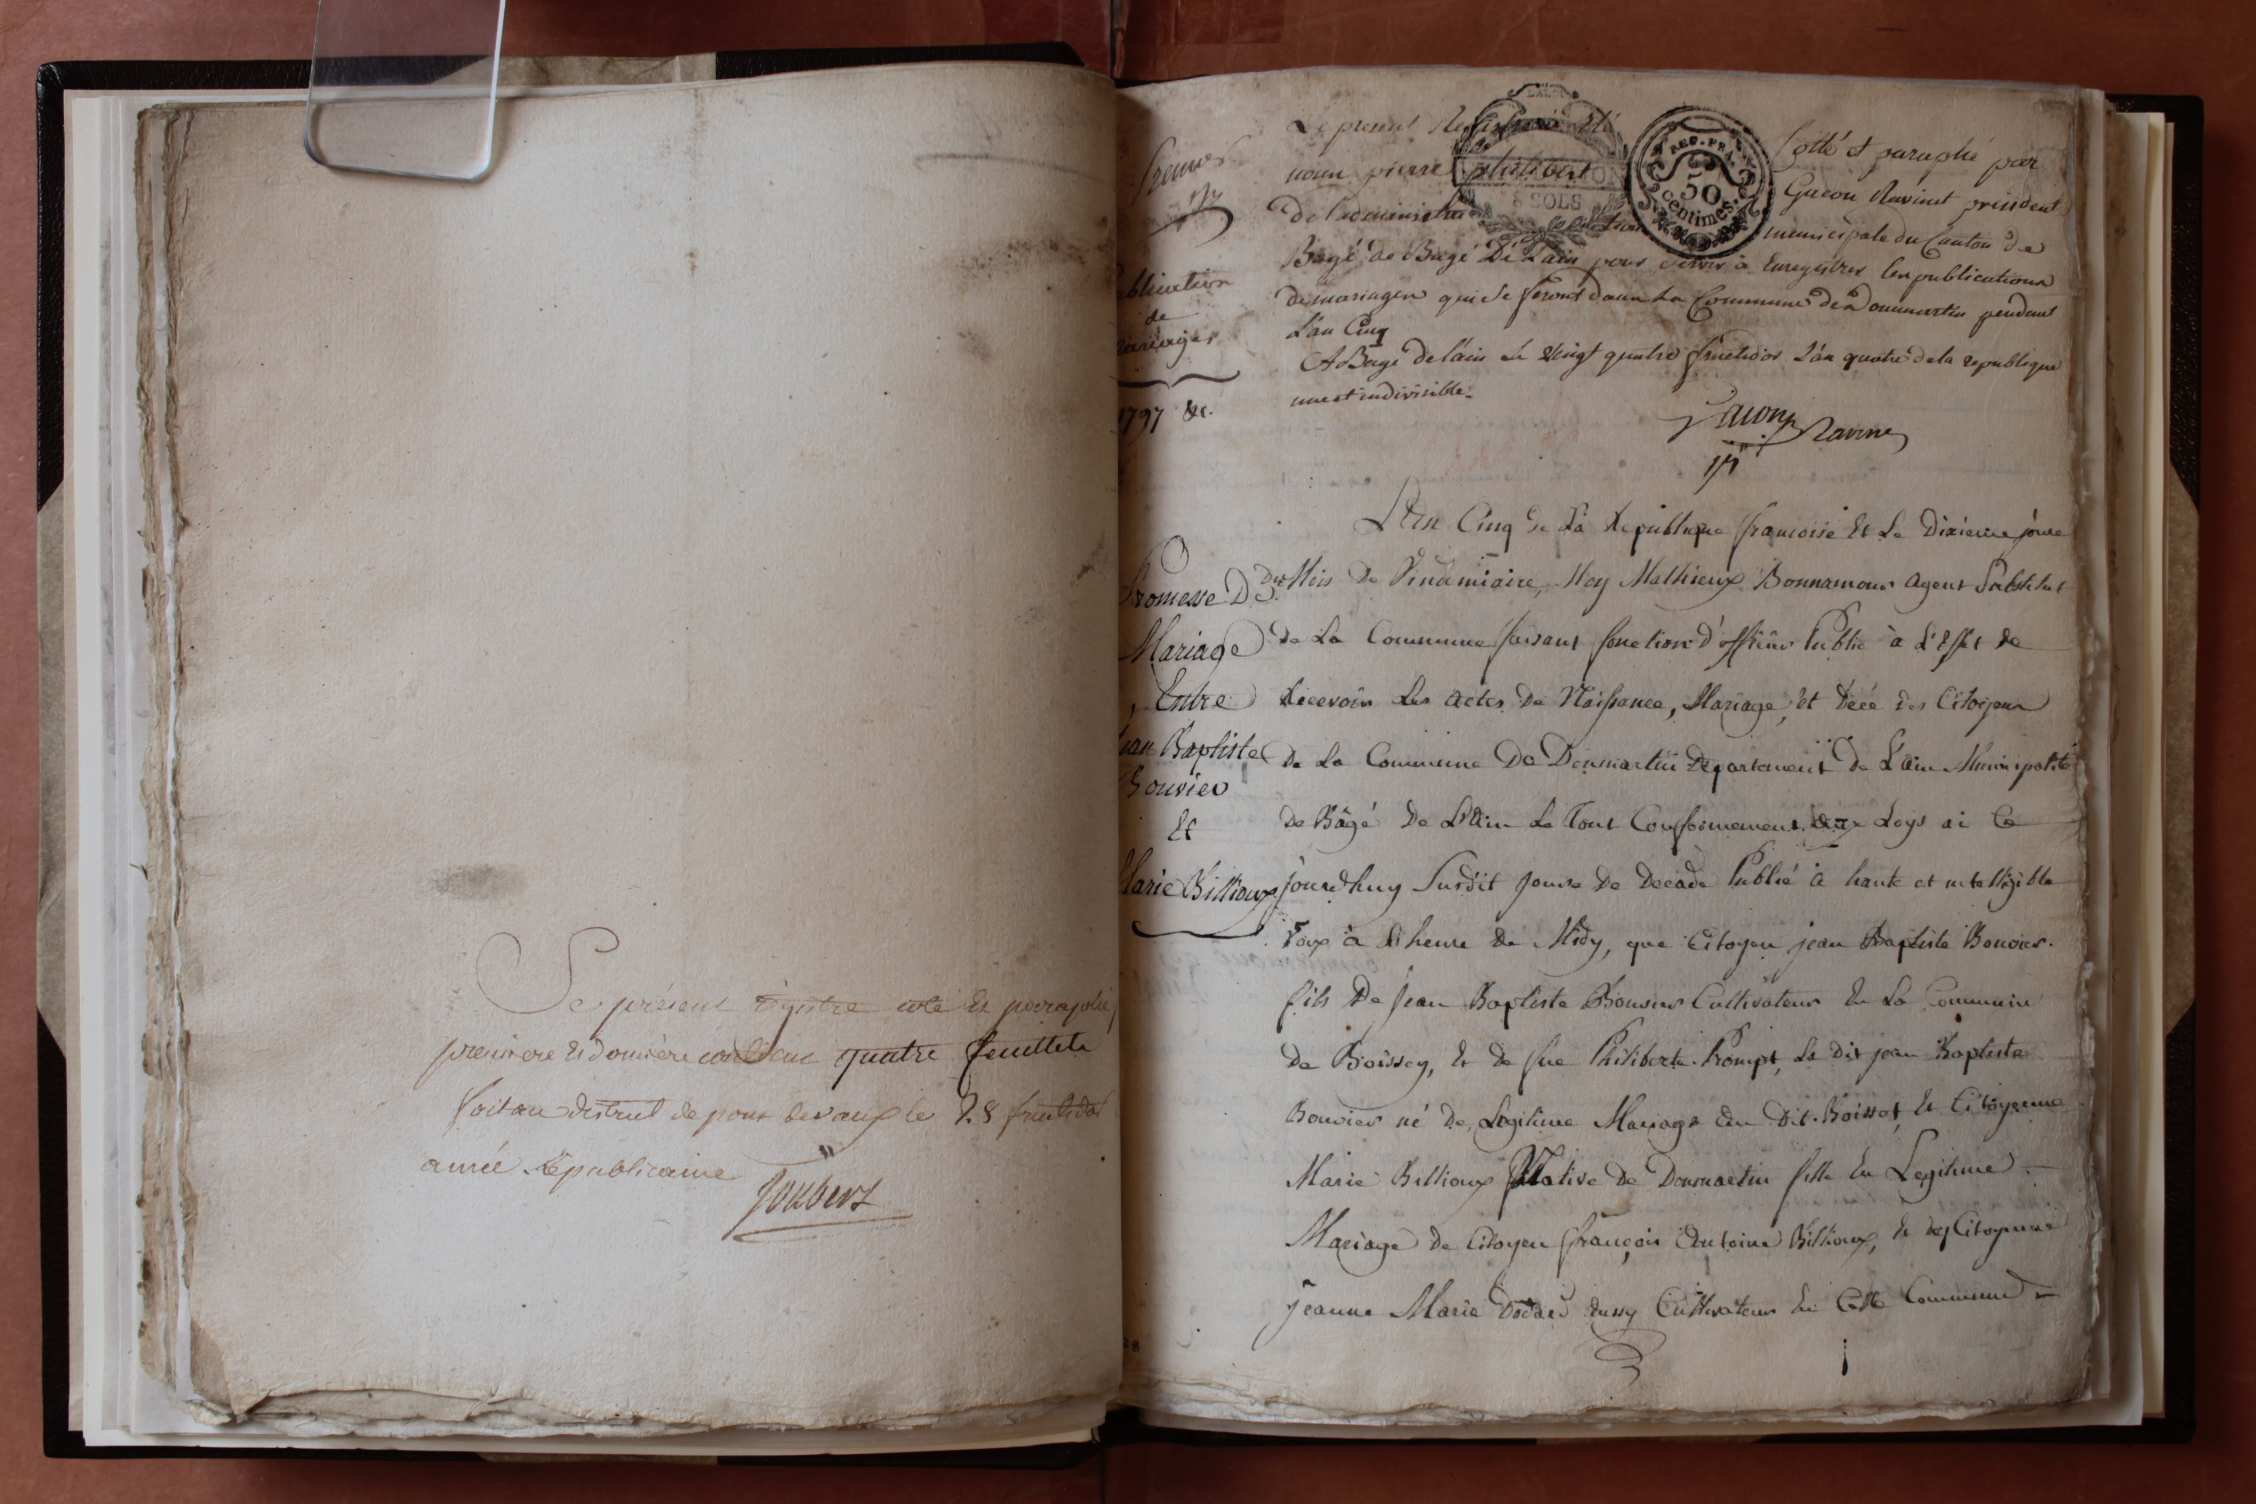 Le présent régistre coté et parraphé
premiere et derniere contenant quatre feuillets
fait au district de pont de vaux le 28 fructidor
année républicaine
Joubert
premier
publication
de
mariages
1797 &c.
Le present Registre a été Cotté et paraphé par
nous pierre philibert Gacon Ravinet président
de l'administration municipale du Canton de
Bagé de Bagé De L'ain pour servir à Enregistrer les publications
de mariages qui se feront dans la Commune de Dommartin pendant
L'an Cinq
A Bagé de l'ain le vingt quatre fructidor L'an quatre de la republique
une et indivisible.
REG. FRA.
50
centimes.
SOLS
Gacon Ravinet
Promesse De
Mariage
Entre
Jean Baptiste
Bouvier
Et
Marie Billioux
L'an Cinq de La Republique francoise Et Le Dixieme jour
Du Mois De Vindemiaire, Moy Mathieux Bonnamour Agent Substitut
de La Commune faisant fonction d'officier Public à L'Effet de
Recevoir Les actes De Naissance, Mariage, et Décé des Citoyens
De La Commune De Donmartin Departement De L'ain Municipalité
de Bâgé De L'Ain Le Tout Conformement aux Loys ai Ce
jourdhuy Surdit jour De Decade Publié à haute et intelligible
Voix à L'heure De Midy, que Citoyen jean Baptiste Bouvier.
fils De Jean Baptiste Bouvier Cultivateur En La Commune
de Boissey, Et de fue Philiberte Prompt, Le Dit jean Baptiste
Bouvier né De Legitime Mariage au Dit Boissot, Et Citoyenne
Marie Billioux Native De Donmartin fille En Legitime
Mariage de Citoyen françois Antoine Billioux, Et de Citoyenne
Jeanne Marie aussy Cultivateur En Cette Commune